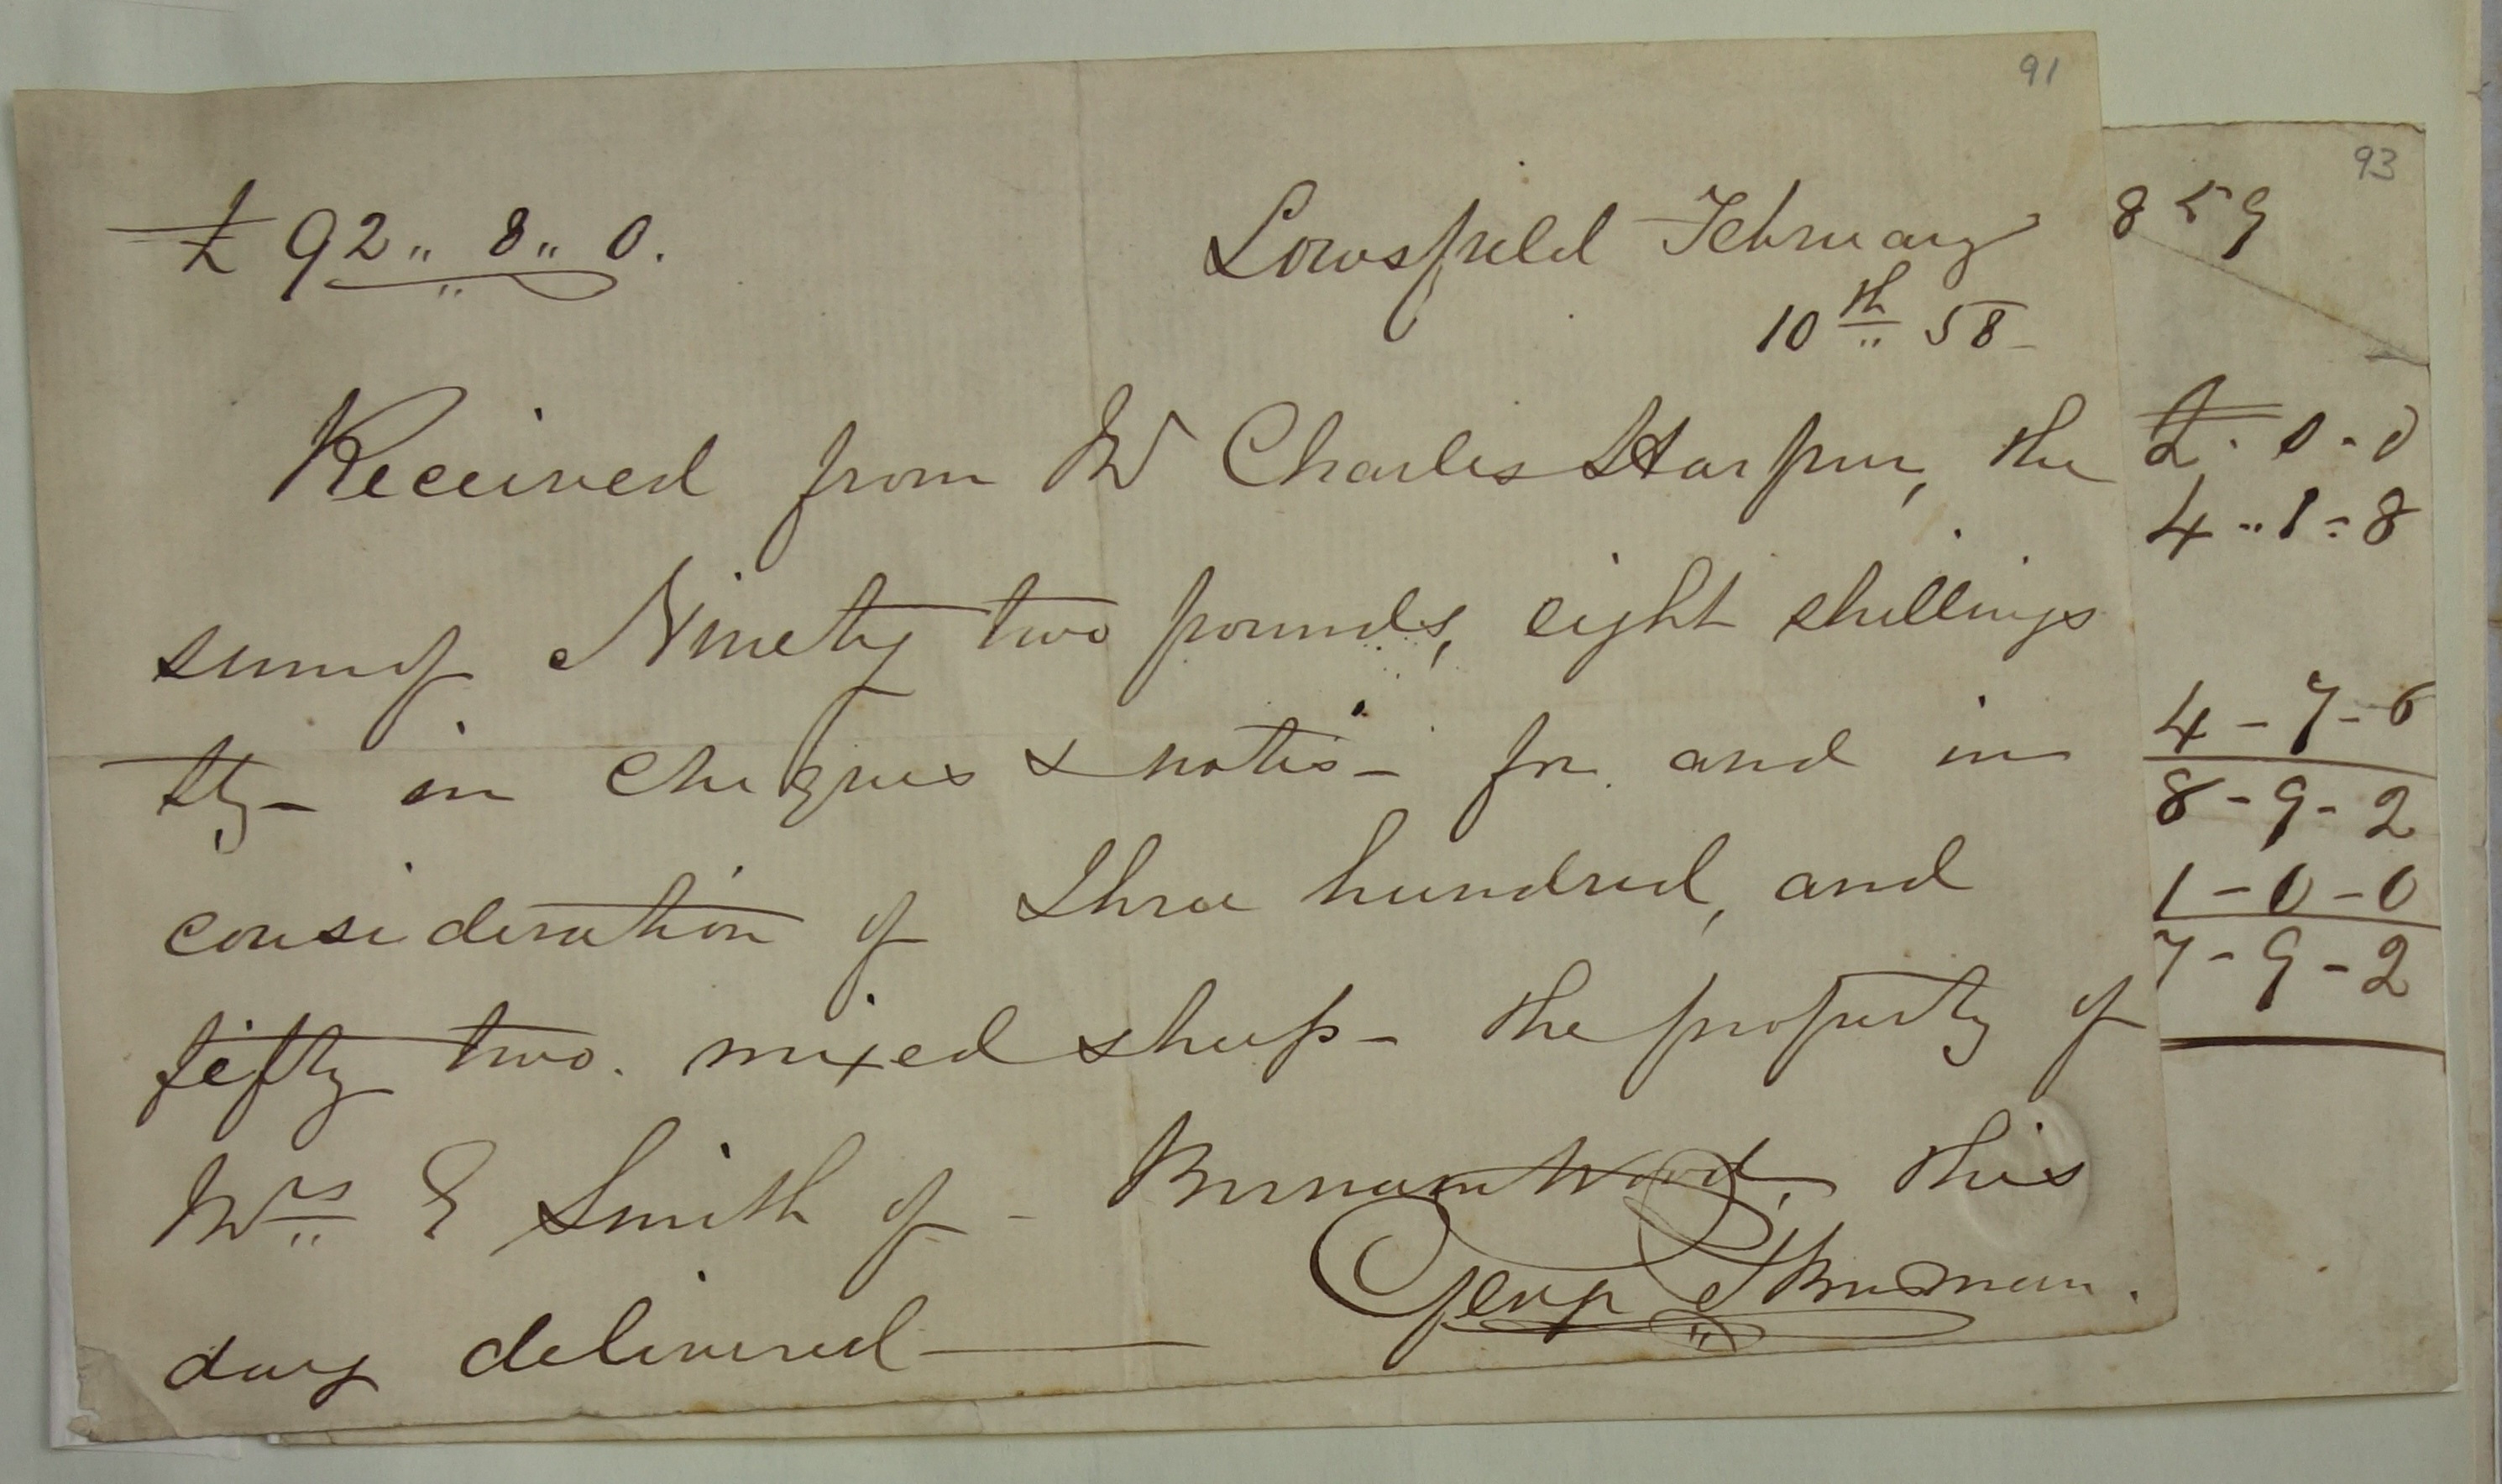 91
£ 92 " 8 " 0.
Lowsfield February
10th 58
Received from Mr Charles Harpur, the
sum of Ninety two pounds, eight shillings
stg - in cheques & notes - for and in
consideration of Three hundred, and
fifty two. mixed sheep - the property of
Mrs E Smith of - Burnam Wood, this
day delivered
93
859
£ - 0 - 0
4 - 1 - 8
4 - 7 - 6
8 - 9 - 2
1 - 0 - 0
7 - 9 - 2